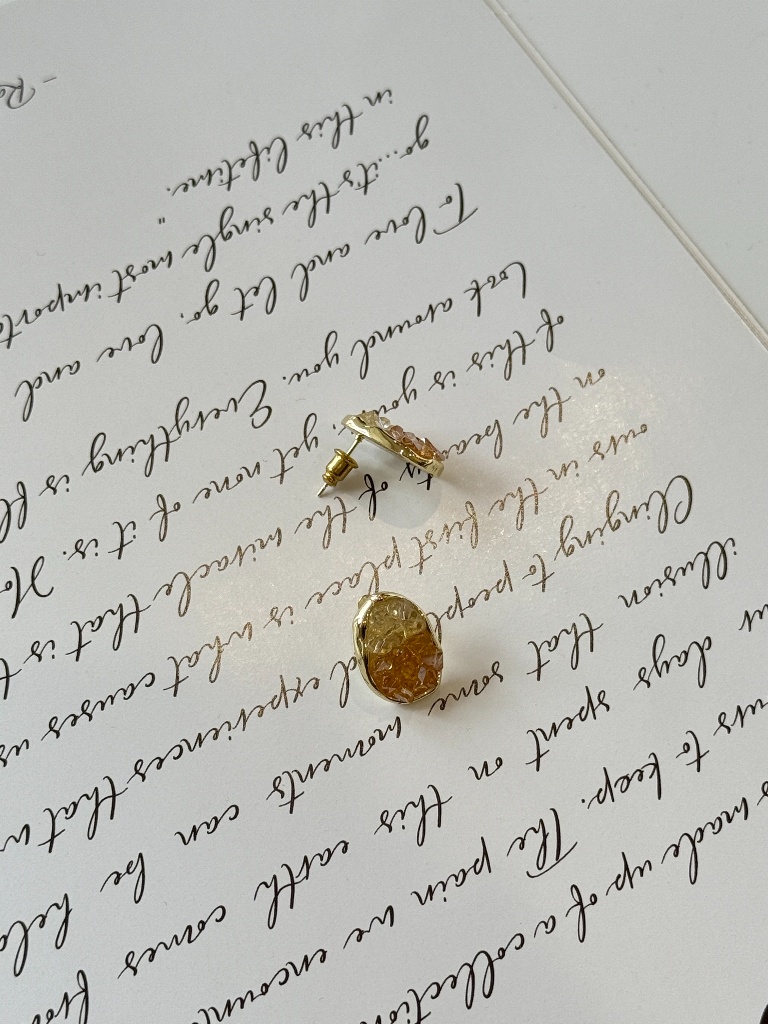 s made up of a collection
urs to keep. The pain we encount
ur days spent on this earth comes fro
illusion that some moments can be held
Clinging to people d experiences that w
ours in the first place is what causes us
on the beau ty of the miracle that is t
of this is you yet none of it is. No
look around you. Everything is fl
To love and let go, love and
go...it's the single most importa
in this lifetime."
- Ra